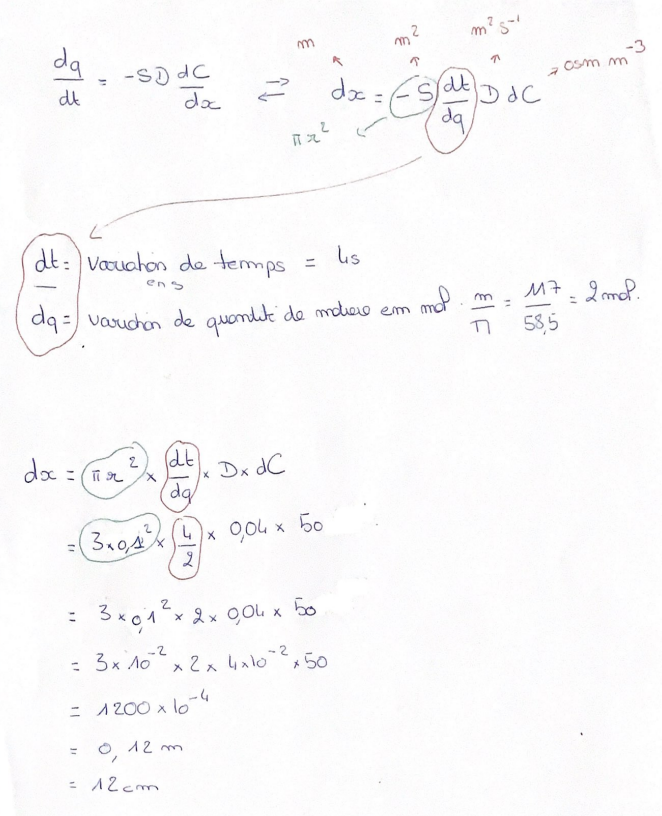 m m² m² s⁻¹
dq/dt = -SD dC/dx ⇌ dx = -S dt/dq D dC → osm m⁻³
πr²
dt = Variation de temps = 4s
en s
dq = variation de quantité de matière en mol . m/M = 117/58,5 = 2 mol.
dx = πr² × dt/dq × D × dC
= 3×0,1² × 4/2 × 0,04 × 50
= 3 × 0,1² × 2 × 0,04 × 50
= 3 × 10⁻² × 2 × 4×10⁻² × 50
= 1200 × 10⁻⁴
= 0,12 m
= 12 cm